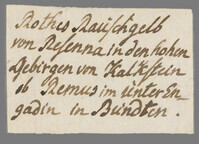 Rothes Rauschgelb
von Resenna in den hohen
Gebirgen von Kalkstein
ob Remus im Unter En-
gadin in Bündten.